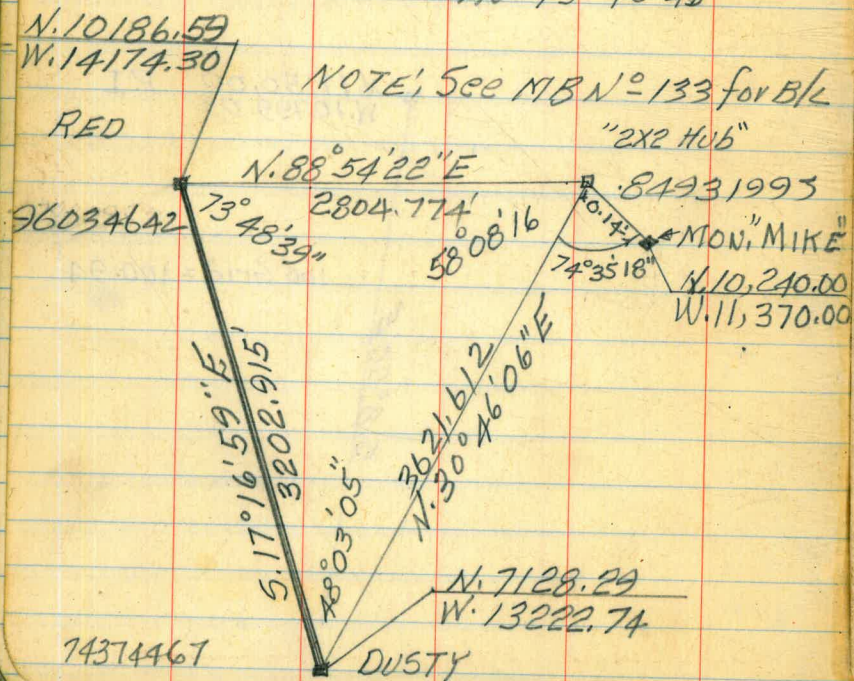 N. 10186.59
W. 14174.30
NOTE; See MB Nº 133 for B/L
RED
"2X2 Hub"
N. 88° 54' 22" E
.84931993
96034642
73° 48' 39"
2804.774'
58° 08' 16
MON, "MIKE"
74° 35' 18"
N. 10,240.00
W. 11,370.00
S. 17° 16' 59" E
3202.915'
3621.612
N. 30° 46' 06" E
48° 03' 05"
N. 7128.29
W. 13222.74
74374467
DUSTY